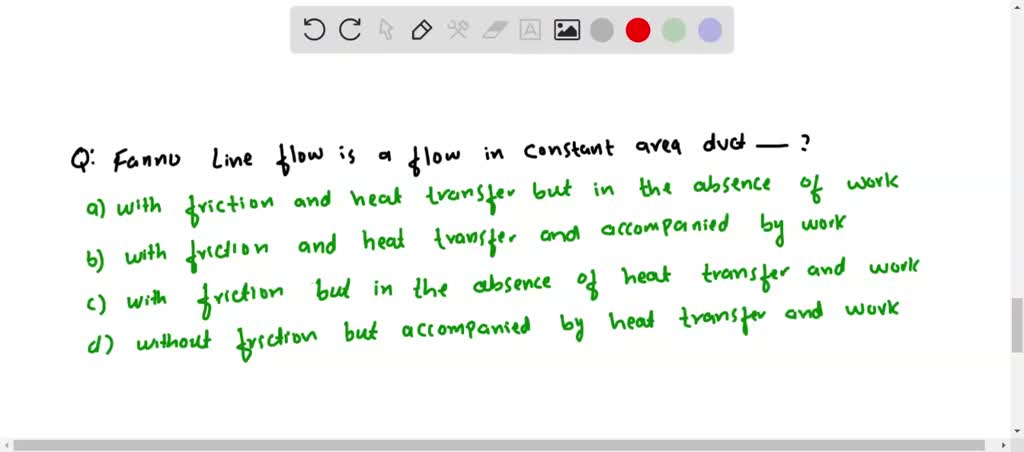 Q: Fanno Line flow is a flow in constant area duct — ?
a) with friction and heat transfer but in the absence of work
b) with friction and heat transfer and accompanied by work
c) with friction but in the absence of heat transfer and work
d) without friction but accompanied by heat transfer and work